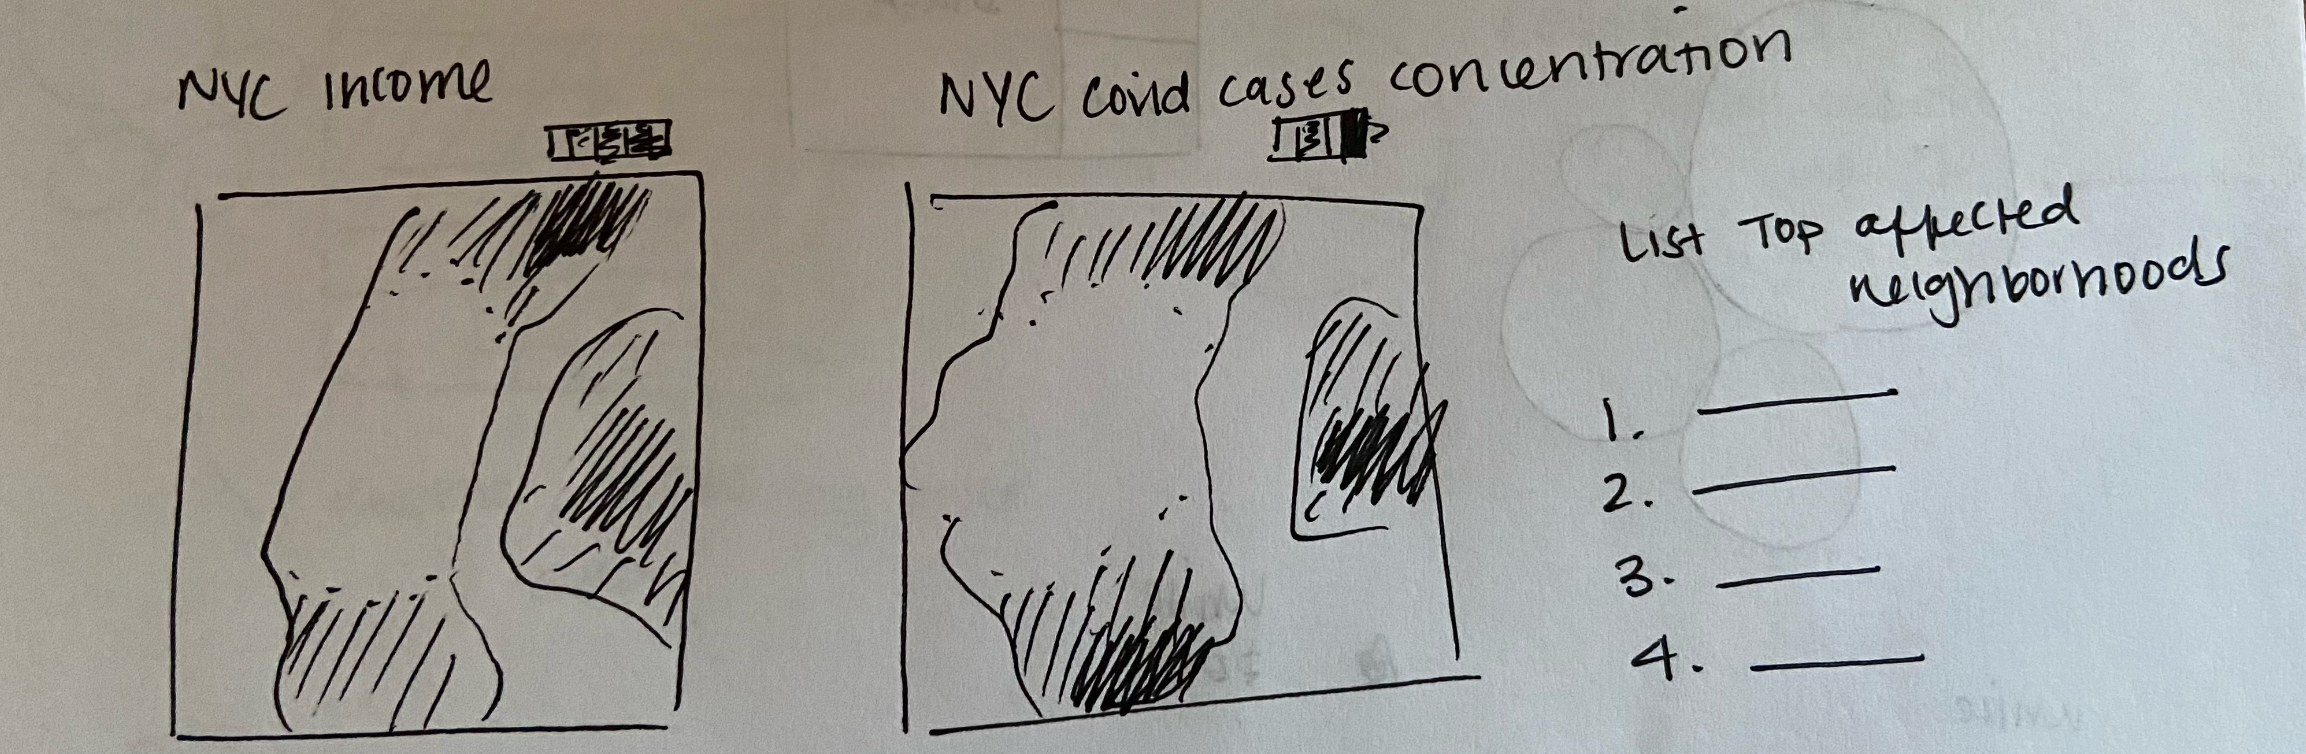 NYC income
NYC covid cases concentration
List Top affected
neighborhoods
1.
2.
3.
4.